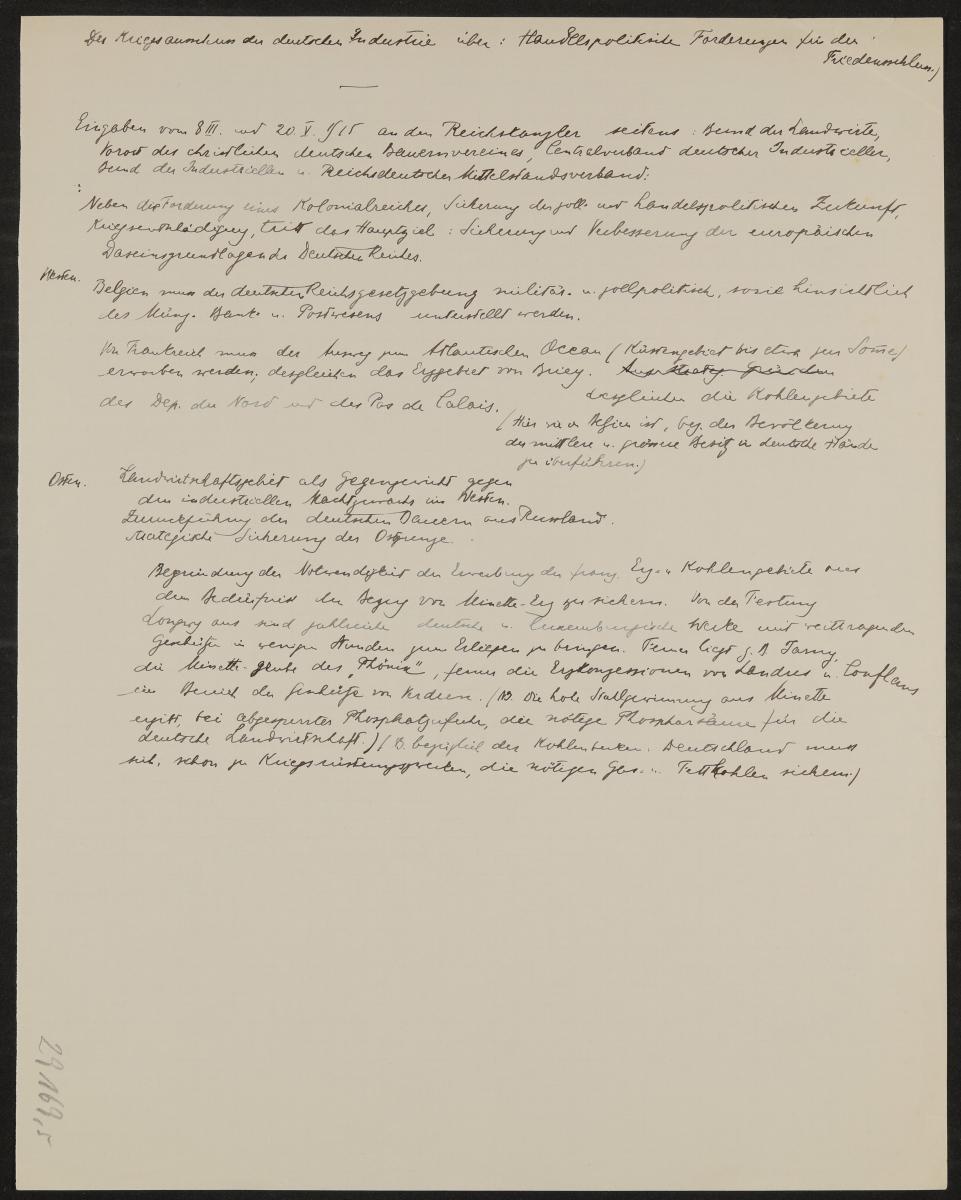 Der Kriegsausschuss der deutschen Industrie über: Handelspolitische Forderungen für den
Friedensschluss.)
Eingaben vom 8 III. und 20 V. 1915 an den Reichskanzler seitens: Bund der Landwirte,
Vorort des christlichen deutschen Bauernvereines, Centralverband deutscher Industrieller,
Bund der Industriellen u. Reichsdeutscher Mittelstandsverband:
Neben die Forderung eines Kolonialreiches, Sicherung der zoll- und handelspolitischen Zukunft,
Kriegsentschädigung, tritt das Hauptziel: Sicherung und Verbesserung der europäischen
Daseinsgrundlagen des Deutschen Reiches.
Westen.
Belgien muss der deutschen Reichsgesetzgebung militär- u. zollpolitisch, sowie hinsichtlich
des Münz- Bank- u. Postwesens unterstellt werden.
Von Frankreich muss der Ausweg zum Atlantischen Ocean (Küstengebiet bis etwa zur Somme)
erworben werden; desgleichen das Erzgebiet von Briey.
desgleichen die Kohlengebiete
des Dep. du Nord und des Pas de Calais.
(Hier wie in Belgien ist, bez. der Bevölkerung
der mittlere u. grössere Besitz in deutsche Hände
zu überführen.)
Osten.
Landwirtschaftsgebiet als Gegengewicht gegen
den industriellen Machtzuwachs im Westen.
Zurückführung der deutschen Bauern aus Russland.
strategische Sicherung der Ostgrenze.
Begründung der Notwendigkeit der Erwerbung der franz. Erz- u Kohlengebiete aus
dem Bedürfniss den Bezug von Minette-Erz zu sichern. Von der Festung
Longwy aus sind zahlreiche deutsche u. Luxemburgische Werke mit weittragenden
Geschützen in wenigen Stunden zum Erliegen zu bringen. Ferner liegt z.B Jarny,
die Minette-grube des "Phönix", ferner die Erzkonzessionen von Landres u. Conflans
im Bereich der Geschütze von Verdun. (NB. Die hohe Stahlgewinnung aus Minette
ergibt, bei abgesperrter Phosphatzufuhr, die nötige Phosphorsäure für die
deutsche Landwirtschaft.) (B. bezüglich der Kohlenbecken: Deutschland muss
sich, schon zu Kriegsrüstungszwecken, die nötigen Gas- u. Fettkohlen sichern.)
29169,5